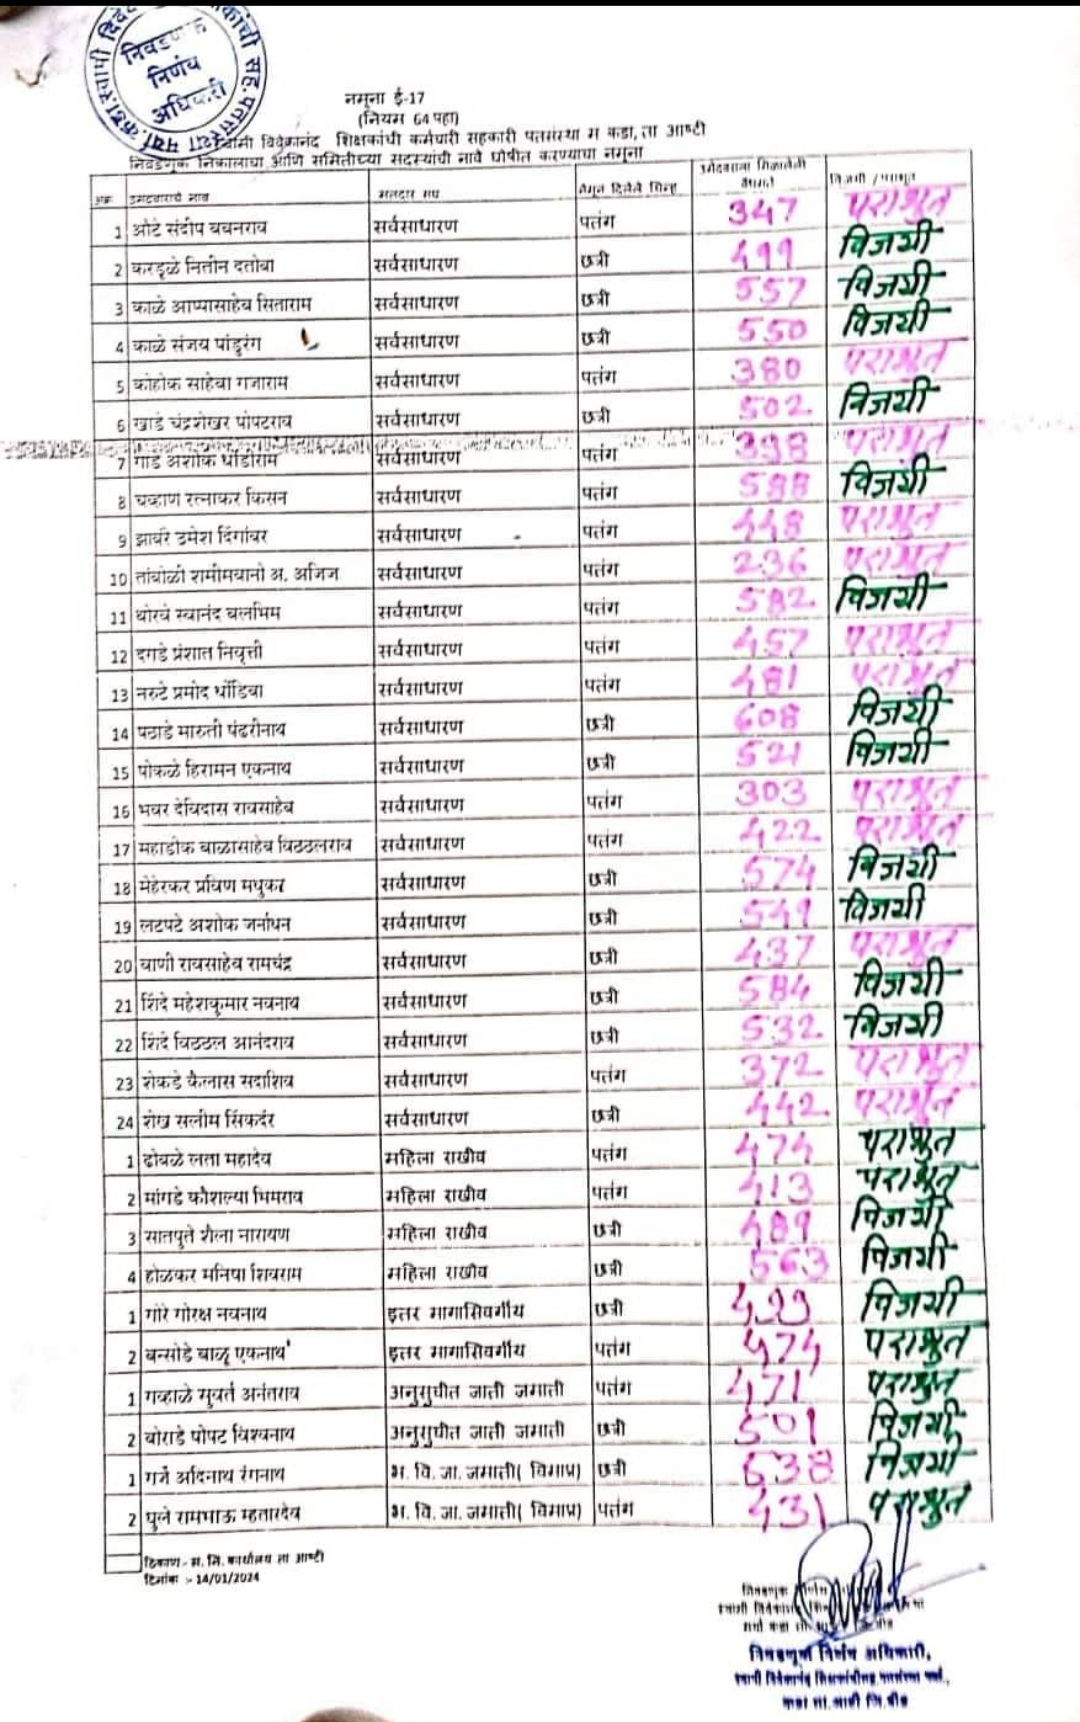 निवडणूक
निर्णय
अधिकारी
नमुना ई-17
(नियम 64 पहा)
स्वामी विवेकानंद शिक्षकांची कर्मचारी सहकारी पतसंस्था म कडा, ता आष्टी
निवडणूक निकालाचा आणि समितीच्या सदस्यांची नावे घोषीत करण्याचा नमूना
अक्र उमेदवाराचे नाव मतदार संघ नेमून दिलेले चिन्ह उमेदवाराला मिळालेली वैधमते विजयी / पराभूत
1 औटे संदीप बबनराव सर्वसाधारण पतंग 347 पराभूत
2 करडूळे नितीन दतोबा सर्वसाधारण छत्री 499 विजयी
3 काळे आप्पासाहेब सिताराम सर्वसाधारण छत्री 557 विजयी
4 काळे संजय पांडुरंग सर्वसाधारण छत्री 550 विजयी
5 कोहोक साहेबा गजाराम सर्वसाधारण पतंग 380 पराभूत
6 खाडे चंद्रशेखर पोपटराव सर्वसाधारण छत्री 502 विजयी
7 गाडे अशोक धोंडीराम सर्वसाधारण पतंग 398 पराभूत
8 चव्हाण रत्नाकर किसन सर्वसाधारण पतंग 588 विजयी
9 झावरे उमेश दिंगांबर सर्वसाधारण पतंग 448 पराभूत
10 तांबोळी शमीमबानो अ. अजिज सर्वसाधारण पतंग 236 पराभूत
11 थोरवे स्वानंद बलभिम सर्वसाधारण पतंग 582 विजयी
12 दगडे प्रंशात निवृत्ती सर्वसाधारण पतंग 457 पराभूत
13 नरुटे प्रमोद धोंडिबा सर्वसाधारण पतंग 481 पराभूत
14 पठाडे मारुती पंढरीनाथ सर्वसाधारण छत्री 608 विजयी
15 पोकळे हिरामन एकनाथ सर्वसाधारण छत्री 521 विजयी
16 भवर देविदास रावसाहेब सर्वसाधारण पतंग 303 पराभूत
17 महाडीक बाळासाहेब विठठलराव सर्वसाधारण पतंग 422 पराभूत
18 मेहेरकर प्रविण मधुकर सर्वसाधारण छत्री 574 विजयी
19 लटपटे अशोक जर्नाधन सर्वसाधारण छत्री 549 विजयी
20 वाणी रावसाहेब रामचंद्र सर्वसाधारण छत्री 437 पराभूत
21 शिंदे महेशकुमार नवनाथ सर्वसाधारण छत्री 584 विजयी
22 शिंदे विठठल आनंदराव सर्वसाधारण छत्री 532 विजयी
23 शेकडे कैलास सदाशिव सर्वसाधारण पतंग 372 पराभूत
24 शेख सलीम सिंकदर सर्वसाधारण छत्री 442 पराभूत
1 ढोबळे लता महादेव महिला राखीव पतंग 474 पराभूत
2 मांगडे कौशल्या भिमराव महिला राखीव पतंग 413 पराभूत
3 सातपुते शैला नारायण महिला राखीव छत्री 489 विजयी
4 होळकर मनिषा शिवराम महिला राखीव छत्री 563 विजयी
1 गोरे गोरक्ष नवनाथ इतर मागासिवर्गीय छत्री 499 विजयी
2 बन्सोडे बाळू एकनाथ इतर मागासिवर्गीय पतंग 474 पराभूत
1 गव्हाळे सुवर्त अनंतराव अनुसुचीत जाती जमाती पतंग 471 पराभूत
2 बोराडे पोपट विश्वनाथ अनुसुचीत जाती जमाती छत्री 501 विजयी
1 गर्जे अदिनाथ रंगनाथ भ. वि. जा. जमाती( विमाप्र) छत्री 538 विजयी
2 घुले रामभाऊ म्हतारदेव भ. वि. जा. जमाती( विमाप्र) पतंग 431 पराभूत
ठिकाण:- स. नि. कार्यालय ता आष्टी
दिनांक :- 14/01/2024
निवडणूक निर्णय
निवडणूक निर्णय अधिकारी,
कडा ता. आष्टी जि.बीड